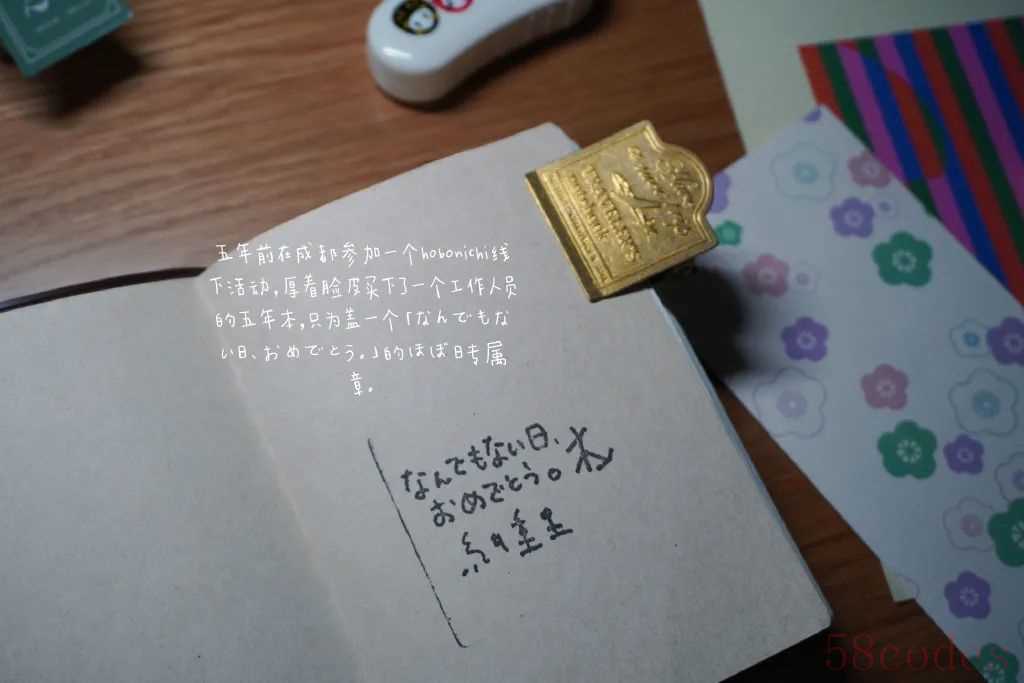 五年前在成都参加一个hobonichi线
下活动,厚着脸皮买下了一个工作人员
的五年本,只为盖一个「なんでもな
い日、おめでとう。」的ほぼ日专属
章。
なんでもない日、
おめでとう。
TRAVELER'S
58codes